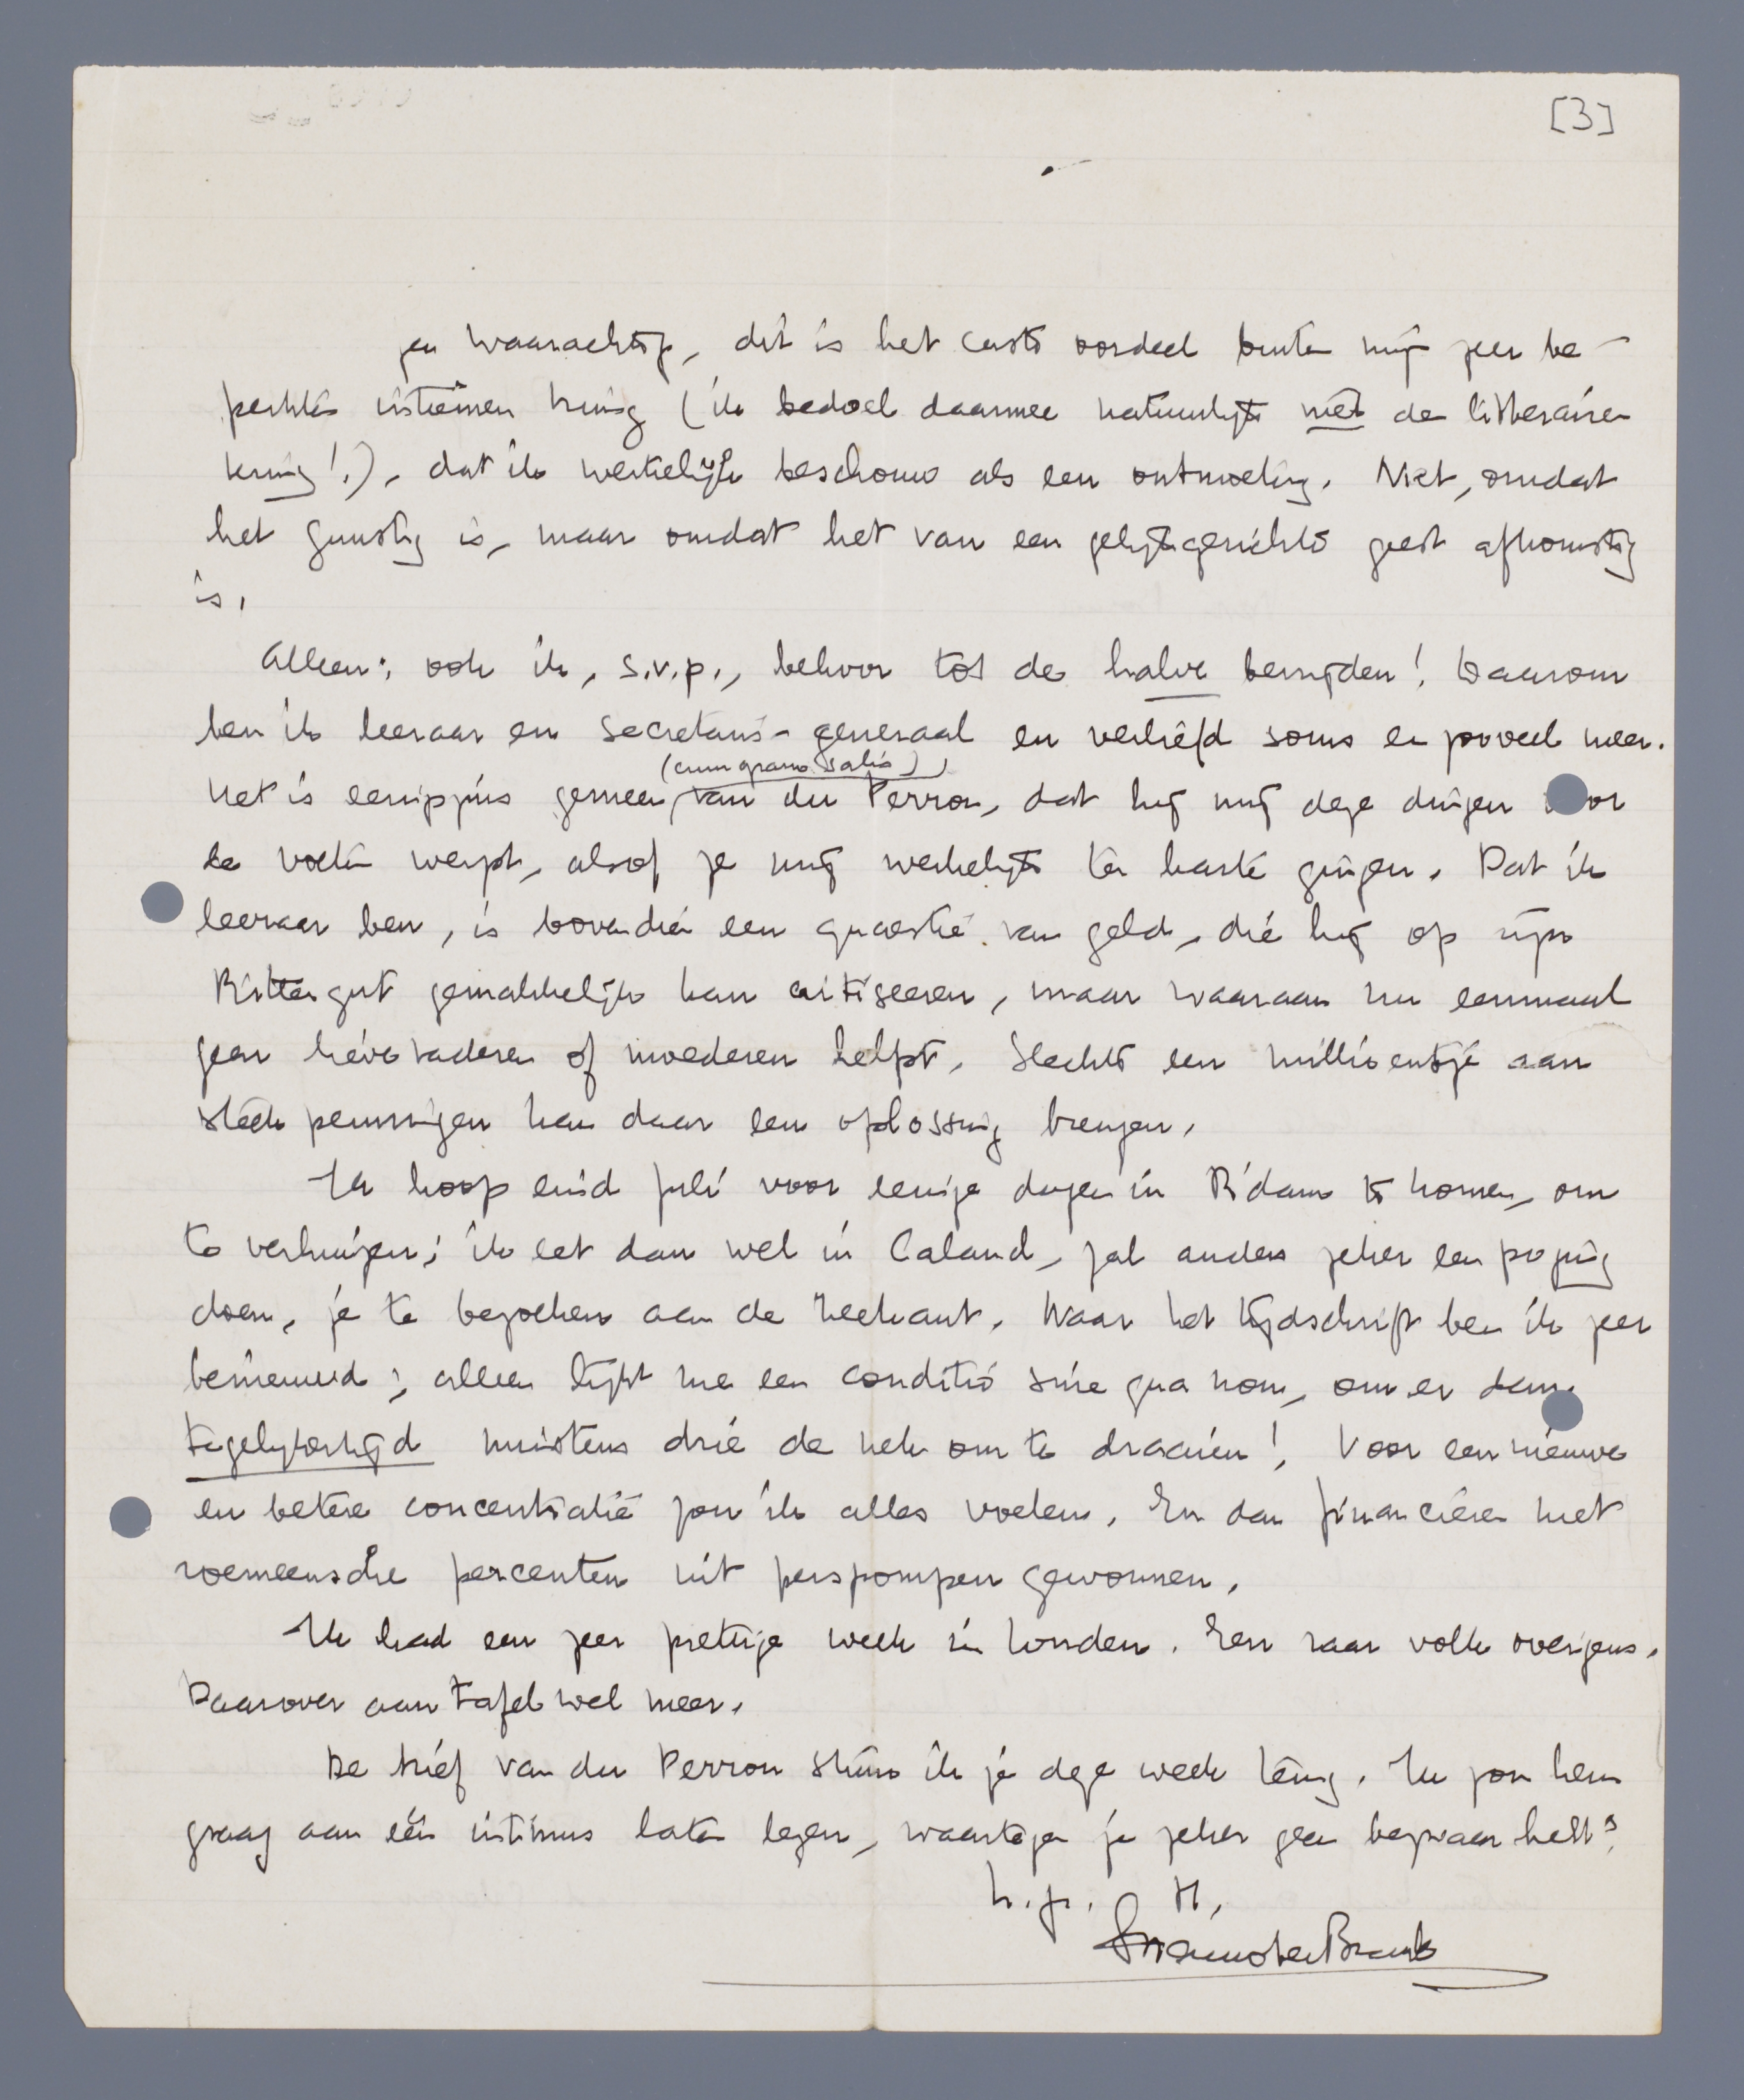 [3]
en waarachtig, dit is het eerste oordeel buiten mijn zeer be-
perkten intiemen kring (ik bedoel daarmee natuurlijk niet den litterairen
kring!), dat ik werkelijk beschouw als een ontmoeting. Niet, omdat
het gunstig is, maar omdat het van een gelijkgerichte geest afkomstig
is.
Alleen: ook ik, s.v.p., behoor tot de halve bevrijden! Daarom
ben ik leeraar en secretaris-generaal en verliefd soms en zooveel meer.
(cum grano salis)
Het is eenigszins gemeen, van du Perron, dat hij mij deze dingen voor
de voeten werpt, alsof ze mij werkelijk ter harte gingen. Dat ik
leeraar ben, is bovendien een quaestie van geld, die hij op zijn
Rittergut gemakkelijk kan critiseeren, maar waaraan nu eenmaal
geen lieve vaderen of moederen helpt. Slechts een millioentje aan
steekpenningen kan daar een oplossing brengen.
Ik hoop eind Juli voor eenige dagen in R'dam te komen, om
te verhuizen; ik eet dan wel in Caland, zal anders zeker een poging
doen, je te bezoeken aan de zeekant. Naar het tijdschrift ben ik zeer
benieuwd; alleen lijkt me een conditio sine qua non, om er dan
tegelijkertijd minstens drie de nek om te draaien! Voor een nieuwe
en betere concentratie zou ik alles voelen. En dan financieren met
roemeensche percenten uit perspompen gewonnen.
Ik had een zeer prettige week in Londen. Een raar volk overigens.
Daarover aan tafel wel meer.
De brief van du Perron stuur ik je deze week terug. Ik zou hem
graag aan één intimus laten lezen, waartegen je zeker geen bezwaar hebt?
h.gr. tt.
Menno ter Braak